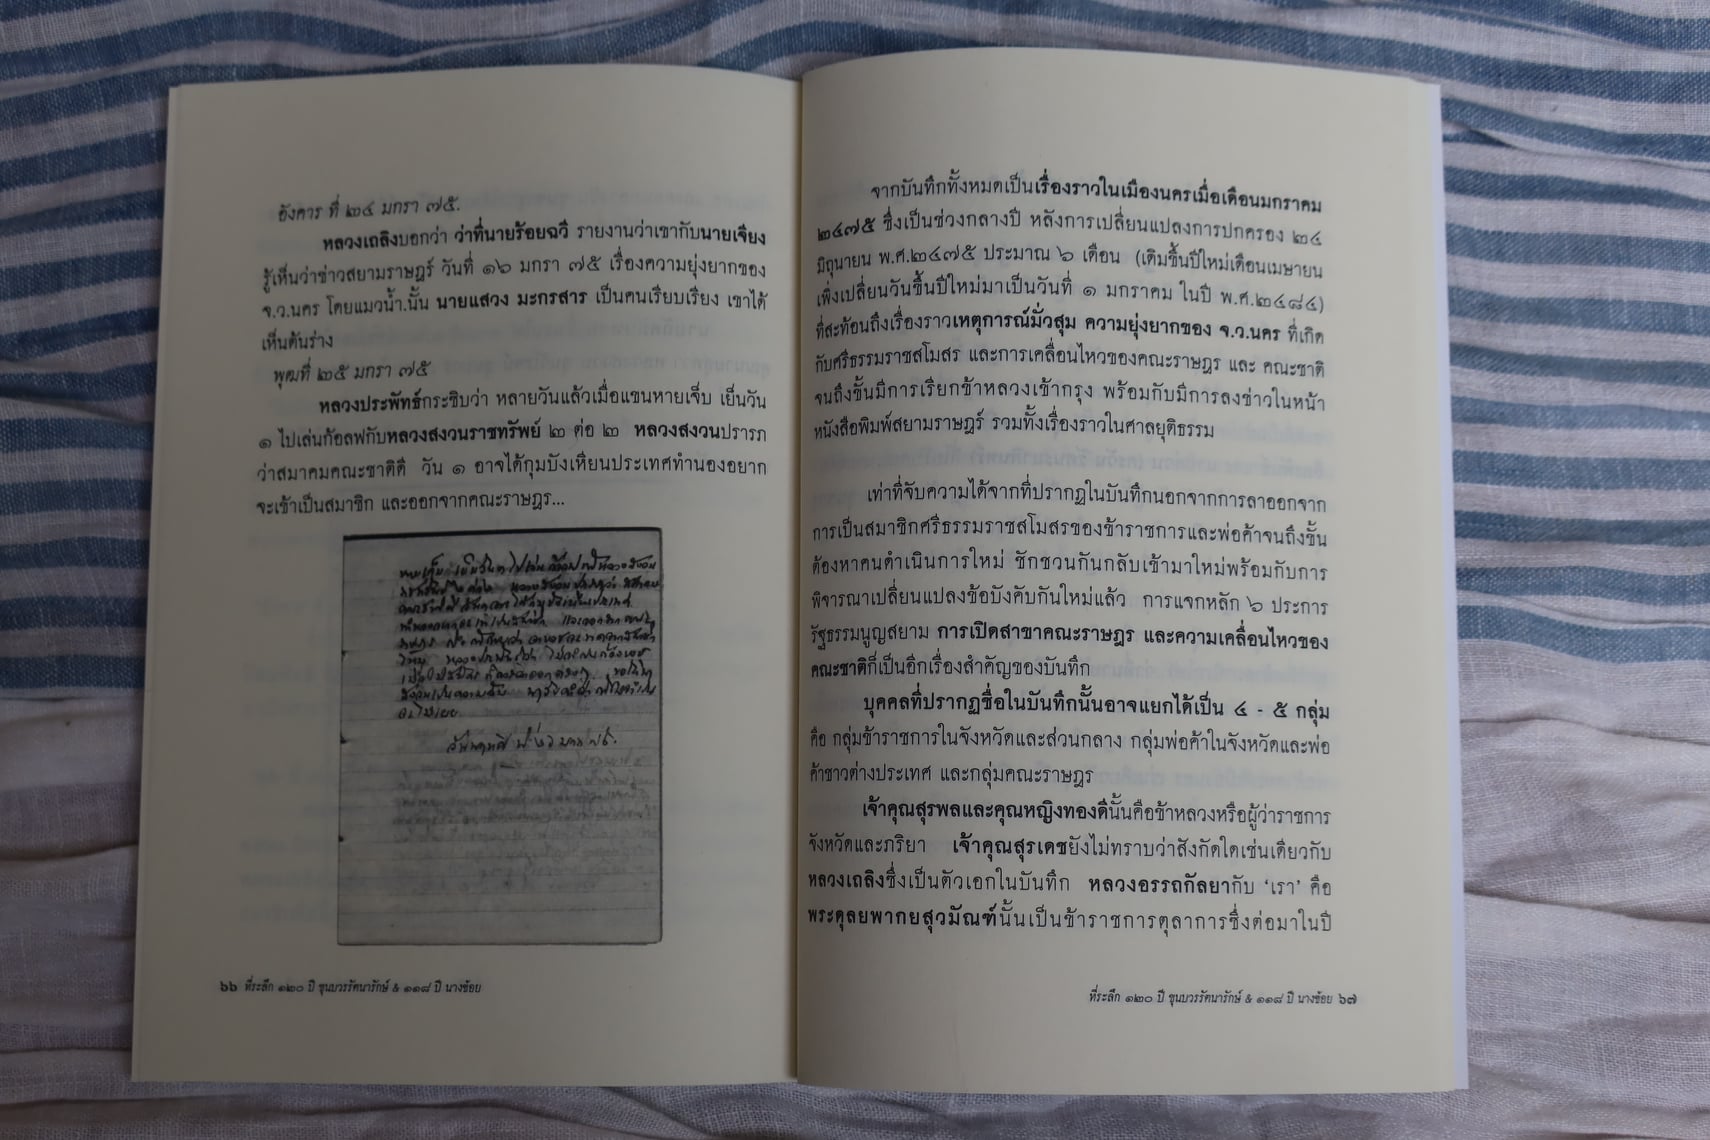 อังคาร ที่ ๒๔ มกรา ๗๕.
หลวงเถลิงบอกว่า ว่าที่นายร้อยฉวี รายงานว่าเขากับนายเจียง
รู้เห็นว่าข่าวสยามราษฎร์ วันที่ ๑๖ มกรา ๗๕ เรื่องความยุ่งยากของ
จ.ว.นคร โดยแมวน้ำ.นั้น นายแสวง มะกรสาร เป็นคนเรียบเรียง เขาได้
เห็นต้นร่าง
พุฒที่ ๒๕ มกรา ๗๕
หลวงประพัทธ์กระซิบว่า หลายวันแล้วเมื่อแขนหายเจ็บ เย็นวัน
๑ ไปเล่นก๊อลฟกับหลวงสงวนราชทรัพย์ ๒ ต่อ ๒ หลวงสงวนปรารภ
ว่าสมาคมคณะชาติดี วัน ๑ อาจได้กุมบังเหียนประเทศทำนองอยาก
จะเข้าเป็นสมาชิก และออกจากคณะราษฎร...
๖๖ ที่ระลึก ๑๒๐ ปี ขุนบวรรัตนารักษ์ & ๑๑๘ ปี นางช้อย
จากบันทึกทั้งหมดเป็นเรื่องราวในเมืองนครเมื่อเดือนมกราคม
๒๔๗๕ ซึ่งเป็นช่วงกลางปี หลังการเปลี่ยนแปลงการปกครอง ๒๔
มิถุนายน พ.ศ.๒๔๗๕ ประมาณ ๖ เดือน (เดิมขึ้นปีใหม่เดือนเมษายน
เพิ่งเปลี่ยนวันขึ้นปีใหม่มาเป็นวันที่ ๑ มกราคม ในปี พ.ศ.๒๔๘๔)
ที่สะท้อนถึงเรื่องราวเหตุการณ์มั่วสุม ความยุ่งยากของ จ.ว.นคร ที่เกิด
กับศรีธรรมราชสโมสร และการเคลื่อนไหวของคณะราษฎร และ คณะชาติ
จนถึงขั้นมีการเรียกข้าหลวงเข้ากรุง พร้อมกับมีการลงข่าวในหน้า
หนังสือพิมพ์สยามราษฎร์ รวมทั้งเรื่องราวในศาลยุติธรรม
เท่าที่จับความได้จากที่ปรากฏในบันทึกนอกจากการลาออกจาก
การเป็นสมาชิกศรีธรรมราชสโมสรของข้าราชการและพ่อค้าจนถึงขั้น
ต้องหาคนดำเนินการใหม่ ชักชวนกันกลับเข้ามาใหม่พร้อมกับการ
พิจารณาเปลี่ยนแปลงข้อบังคับกันใหม่แล้ว การแจกหลัก ๖ ประการ
รัฐธรรมนูญสยาม การเปิดสาขาคณะราษฎร และความเคลื่อนไหวของ
คณะชาติก็เป็นอีกเรื่องสำคัญของบันทึก
บุคคลที่ปรากฏชื่อในบันทึกนั้นอาจแยกได้เป็น ๔ - ๕ กลุ่ม
คือ กลุ่มข้าราชการในจังหวัดและส่วนกลาง กลุ่มพ่อค้าในจังหวัดและพ่อ
ค้าชาวต่างประเทศ และกลุ่มคณะราษฎร
เจ้าคุณสุรพลและคุณหญิงทองดีนั้นคือข้าหลวงหรือผู้ว่าราชการ
จังหวัดและภริยา เจ้าคุณสุรเดชยังไม่ทราบว่าสังกัดใดเช่นเดียวกับ
หลวงเถลิงซึ่งเป็นตัวเอกในบันทึก หลวงอรรถกัลยากับ ‘เรา’ คือ
พระดุลยพากยสุวมัณฑ์นั้นเป็นข้าราชการตุลาการซึ่งต่อมาในปี
ที่ระลึก ๑๒๐ ปี ขุนบวรรัตนารักษ์ & ๑๑๘ ปี นางช้อย ๖๗